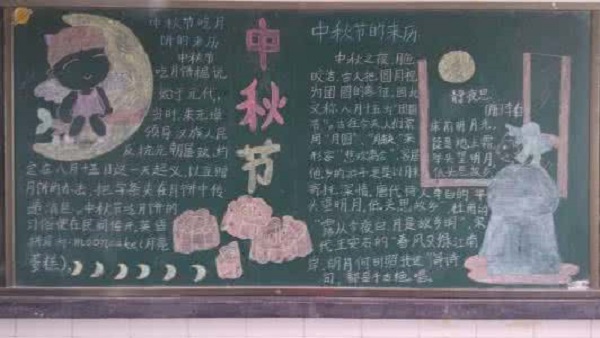 中秋节吃月
饼的来历
中秋节
吃月饼相说
始于元代,
当时,朱元璋
领导汉族人民
反抗元朝暴政,约
定在八月十五日这一天起义,以互赠
月饼的办法,把字条夹在月饼中传
递消息。中秋节吃月饼的
习俗便在民间传开,英语
mooncake(月是
蛋糕)。
中
秋
节
中秋节的来历
中秋之夜,月色
皎洁,古人把圆月视
为团圆的象征,因此,
又称八月十五为"团圆
节"。古往今来,人们常用
"月圆"、"月缺"来
形容"悲欢离合",客居
他乡的游子更是以月
寄托深情。唐代诗人李白的"举
头望明月,低头思故乡",杜甫的
"露从今夜白,月是故乡明",宋
代王安石的"春风又绿江南
岸,明月何时照我还"等诗
句,都是千古绝唱。
静夜思
(唐)李白
床前明月光,
疑是地上霜。
举头望明月,
低头思故乡。